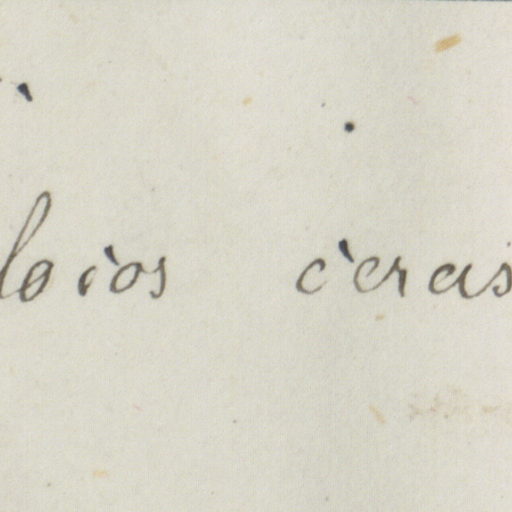 loios ceras